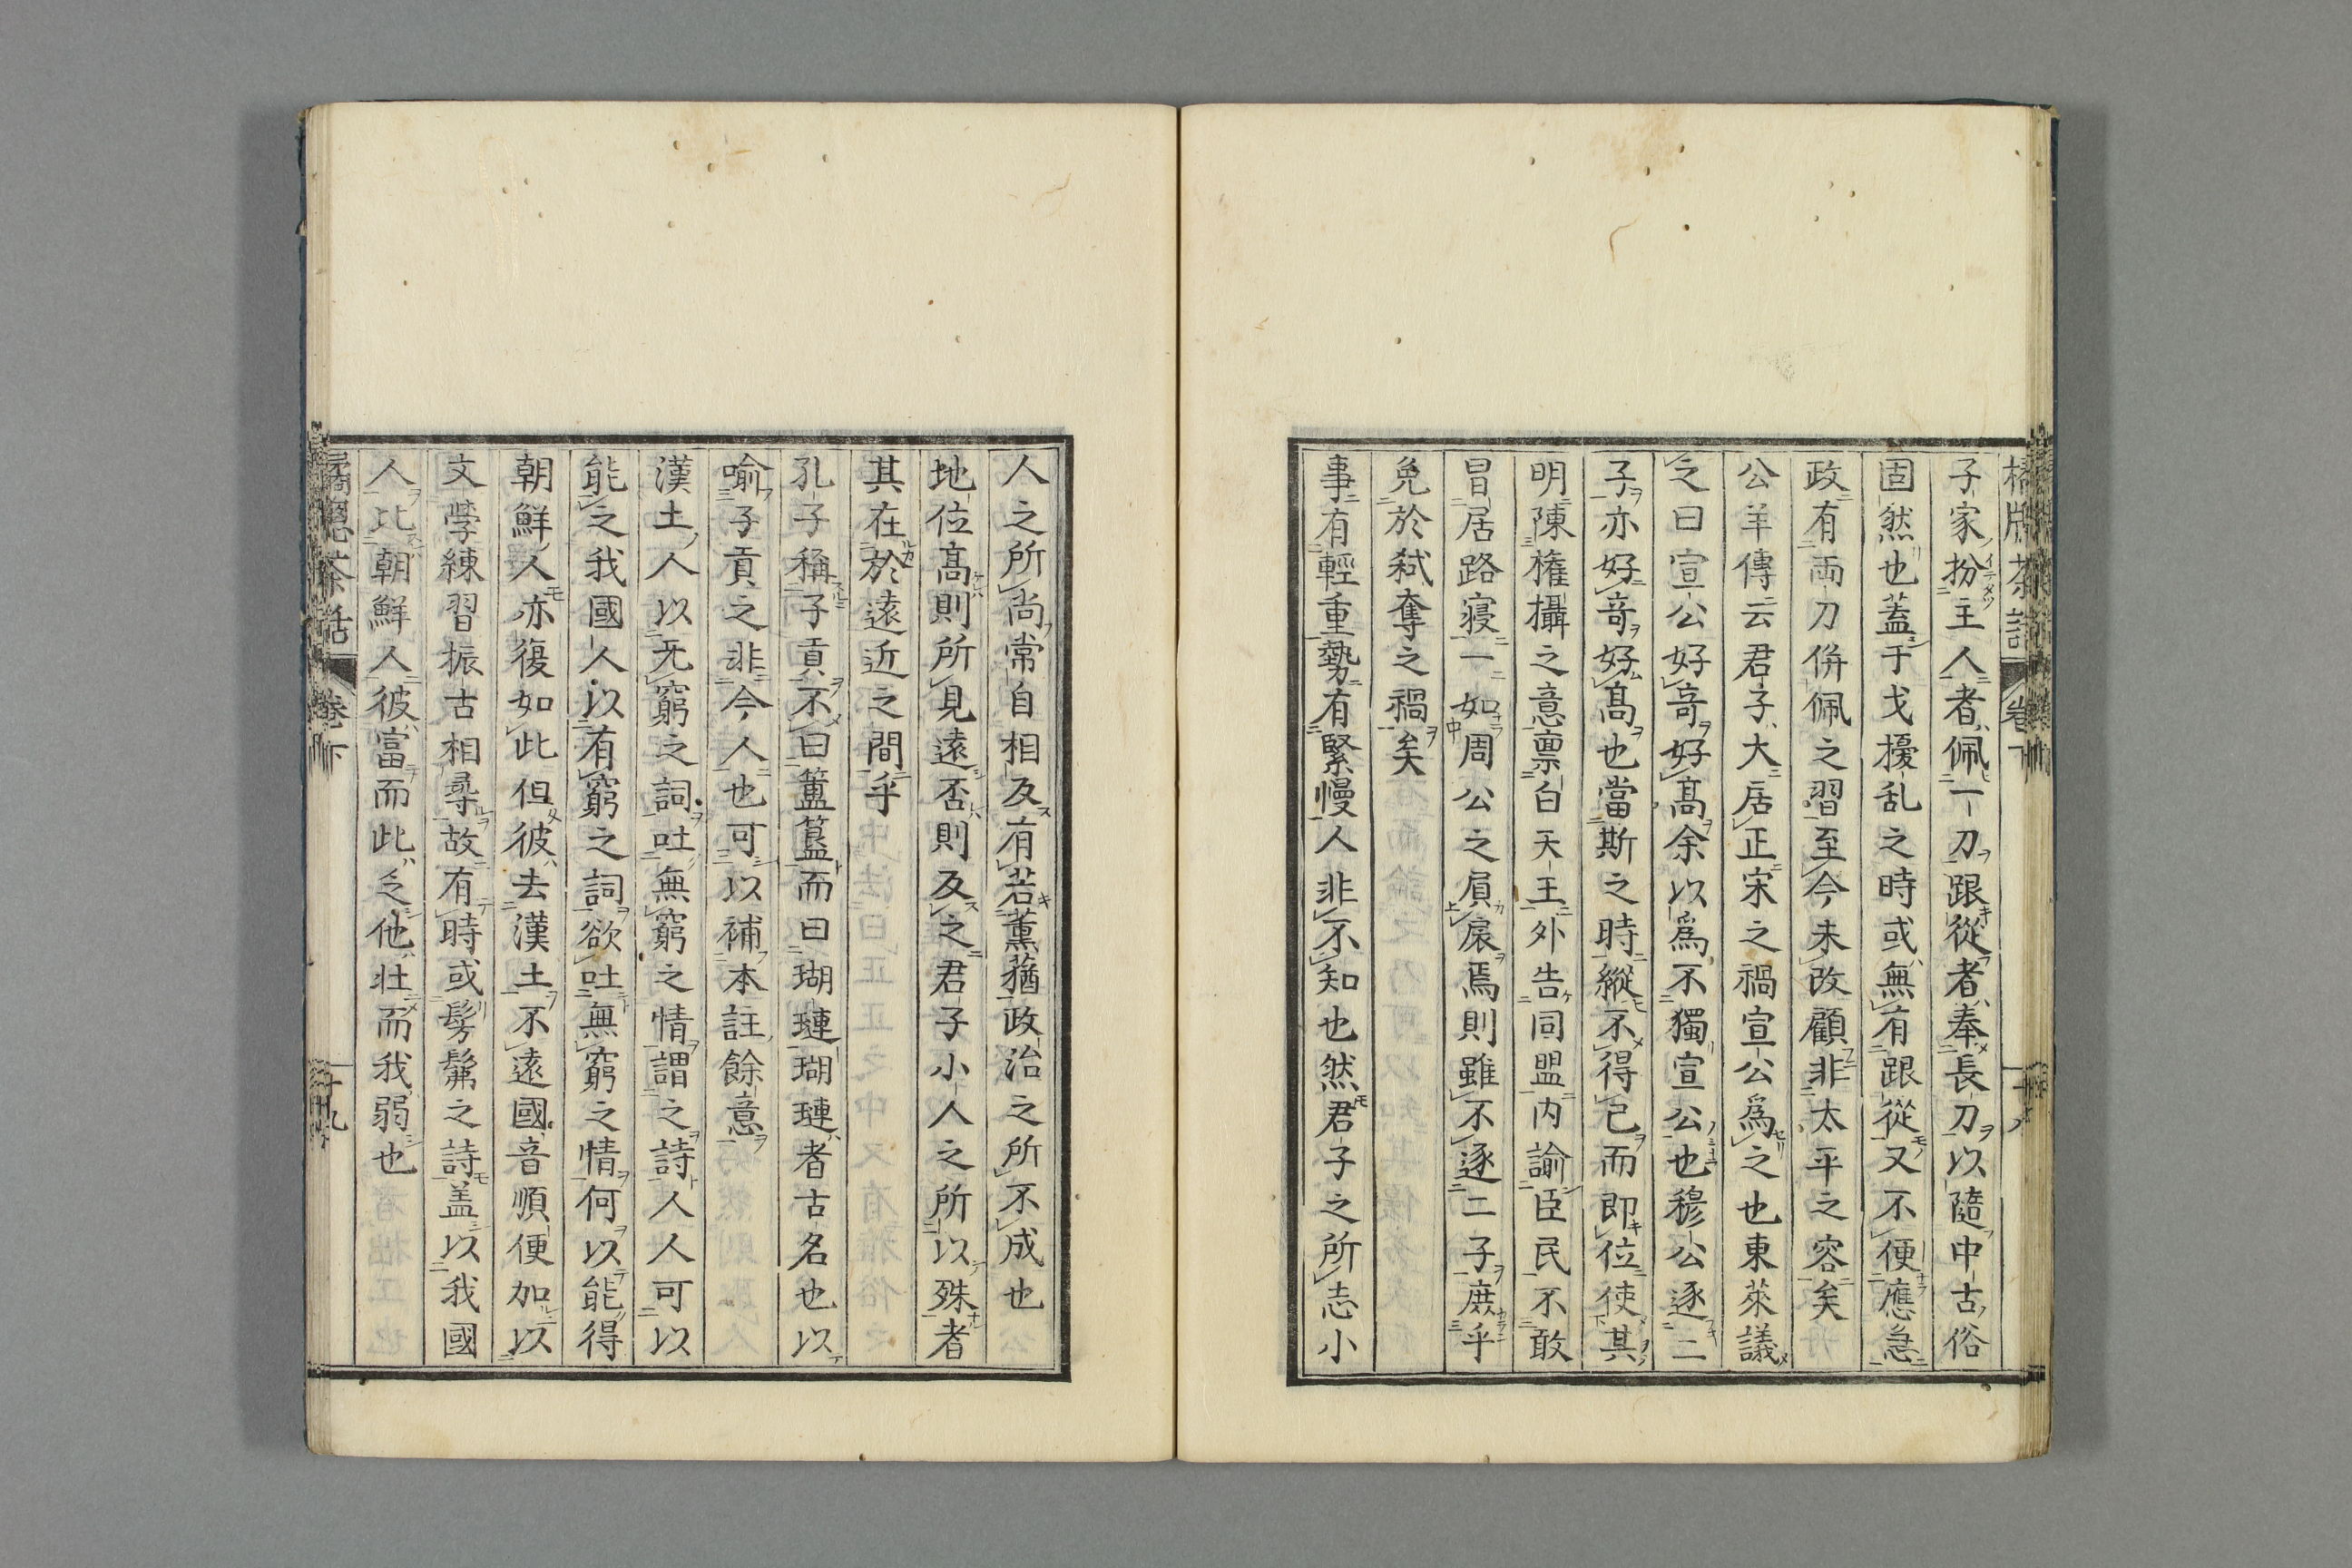 子家扮主人者佩一刀跟從者奉長刀以隨中古俗
固然也蓋于戈擾乱之時或無有跟從又不便應急
政有両刀併佩之習至今未改顧非太平之容矣
公羊傳云君子大居正宋之禍宣公爲之也東萊議
之曰宣公好竒好髙余以爲不獨宣公也穆公逐二
子亦好竒好髙也當斯之時縱不得已而即位使其
明陳権攝之意禀白天王外告同盟内諭臣民不敢
冒居路寝一如周公之負扆焉則雖不逐二子庶乎
免於弑奪之禍矣
事有輕重勢有緊慢人非不知也然君子之所志小
人之所尚常自相反有若薰蕕政治之所不成也
地位髙則所見遠否則反之君子小人之所以殊者
其在於遠近之間乎
孔子稱子貢不曰簠簋而曰瑚璉瑚璉者古名也以
喻子貢之非今人也可以補本註餘意
漢土人以无窮之詞吐無窮之情謂之詩人人可以
能之我國人以有窮之詞欲吐無窮之情何以能得
朝鮮人亦復如此但彼去漢土不遠國音順便加以
文學練習振古相尋故有時或髣髴之詩盖以我國
人比朝鮮人彼富而此乏他壮而我弱也
橘窓茶話 巻下 十九